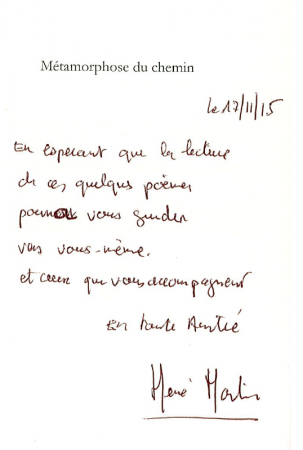 Métamorphose du chemin
le 17/11/15
En espérant que la lecture
de ces quelques poèmes
pourra vous guider
vers vous-même.
et ceux qui vous accompagnent
En toute Amitié
René Martin